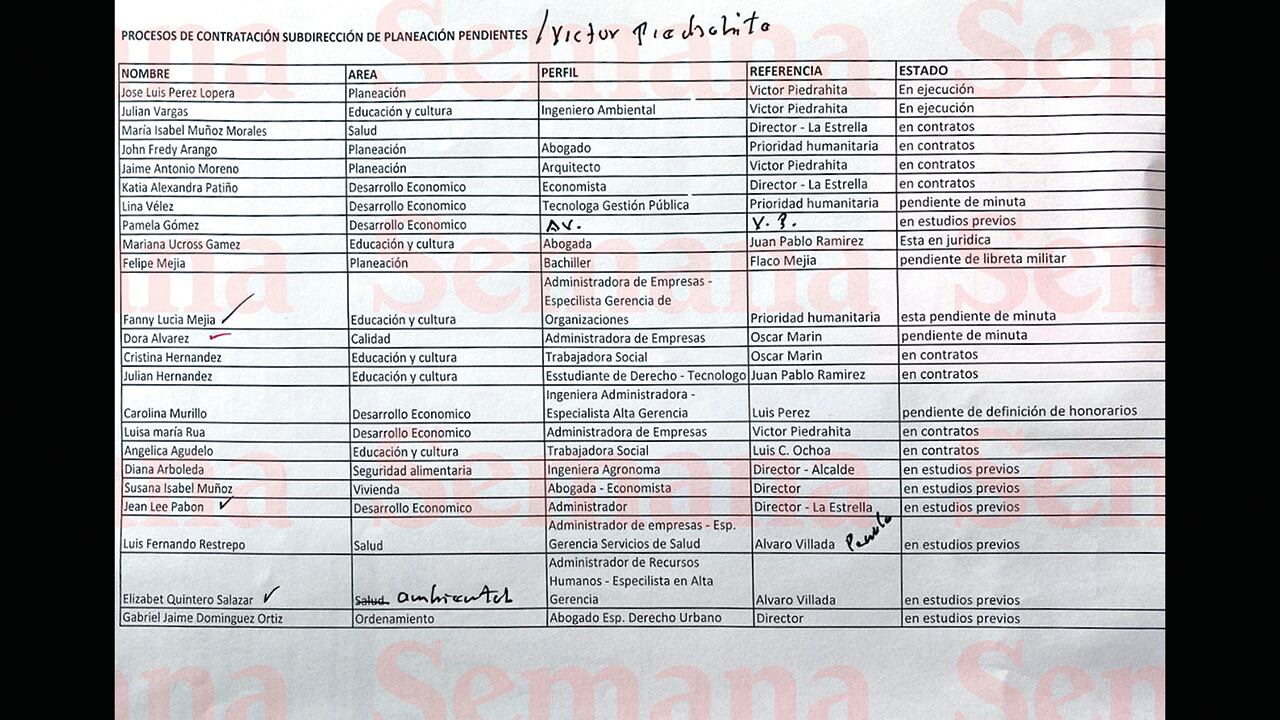 PROCESOS DE CONTRATACIÓN SUBDIRECCIÓN DE PLANEACIÓN PENDIENTES / Victor Piedrahita
NOMBRE AREA PERFIL REFERENCIA ESTADO
Jose Luis Perez Lopera Planeación Victor Piedrahita En ejecución
Julian Vargas Educación y cultura Ingeniero Ambiental Victor Piedrahita En ejecución
María Isabel Muñoz Morales Salud Director - La Estrella en contratos
John Fredy Arango Planeación Abogado Prioridad humanitaria en contratos
Jaime Antonio Moreno Planeación Arquitecto Victor Piedrahita en contratos
Katia Alexandra Patiño Desarrollo Economico Economista Director - La Estrella en contratos
Lina Vélez Desarrollo Economico Tecnologa Gestión Pública Prioridad humanitaria pendiente de minuta
Pamela Gómez Desarrollo Economico AV. V.P. en estudios previos
Mariana Ucross Gamez Educación y cultura Abogada Juan Pablo Ramirez Esta en juridica
Felipe Mejia Planeación Bachiller Flaco Mejia pendiente de libreta militar
Administradora de Empresas -
Especilista Gerencia de
Fanny Lucia Mejia Educación y cultura Organizaciones Prioridad humanitaria esta pendiente de minuta
Dora Alvarez Calidad Administradora de Empresas Oscar Marin pendiente de minuta
Cristina Hernandez Educación y cultura Trabajadora Social Oscar Marin en contratos
Julian Hernandez Educación y cultura Esstudiante de Derecho - Tecnologo Juan Pablo Ramirez en contratos
Ingeniera Administradora -
Carolina Murillo Desarrollo Economico Especialista Alta Gerencia Luis Perez pendiente de definición de honorarios
Luisa maría Rua Desarrollo Economico Administradora de Empresas Victor Piedrahita en contratos
Angelica Agudelo Educación y cultura Trabajadora Social Luis C. Ochoa en contratos
Diana Arboleda Seguridad alimentaria Ingeniera Agronoma Director - Alcalde en estudios previos
Susana Isabel Muñoz Vivienda Abogada - Economista Director en estudios previos
Jean Lee Pabon Desarrollo Economico Administrador Director - La Estrella en estudios previos
Administrador de empresas - Esp.
Luis Fernando Restrepo Salud Gerencia Servicios de Salud Alvaro Villada en estudios previos
Administrador de Recursos
Humanos - Especilista en Alta
Elizabet Quintero Salazar Salud ambiental Gerencia Alvaro Villada en estudios previos
Gabriel Jaime Dominguez Ortiz Ordenamiento Abogado Esp. Derecho Urbano Director en estudios previos
Semana